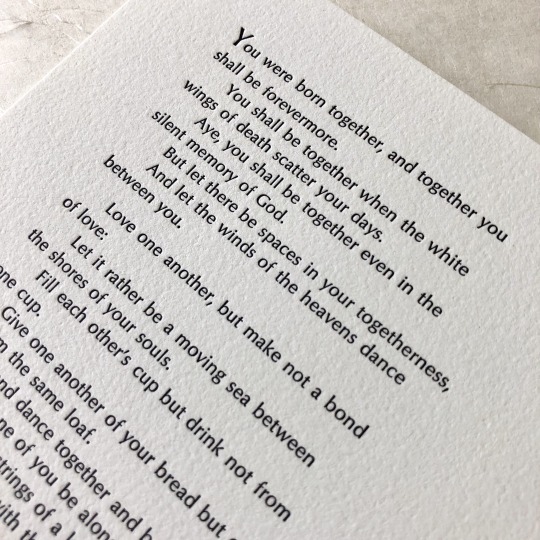 You were born together, and together you
shall be forevermore.
You shall be together when the white
wings of death scatter your days.
Aye, you shall be together even in the
silent memory of God.
But let there be spaces in your togetherness,
And let the winds of the heavens dance
between you.
Love one another, but make not a bond
of love:
Let it rather be a moving sea between
the shores of your souls.
Fill each other's cup but drink not from
one cup.
Give one another of your bread but
the same loaf.
dance together and
of you be
strings of a
with